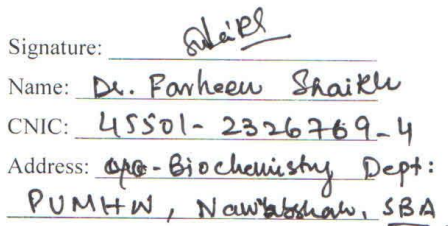 Signature: Shaikh
Name: Dr. Farheen Shaikh
CNIC: 45501-2326769-4
Address: Biochemistry Dept:
PUMHW, Nawabshah, SBA